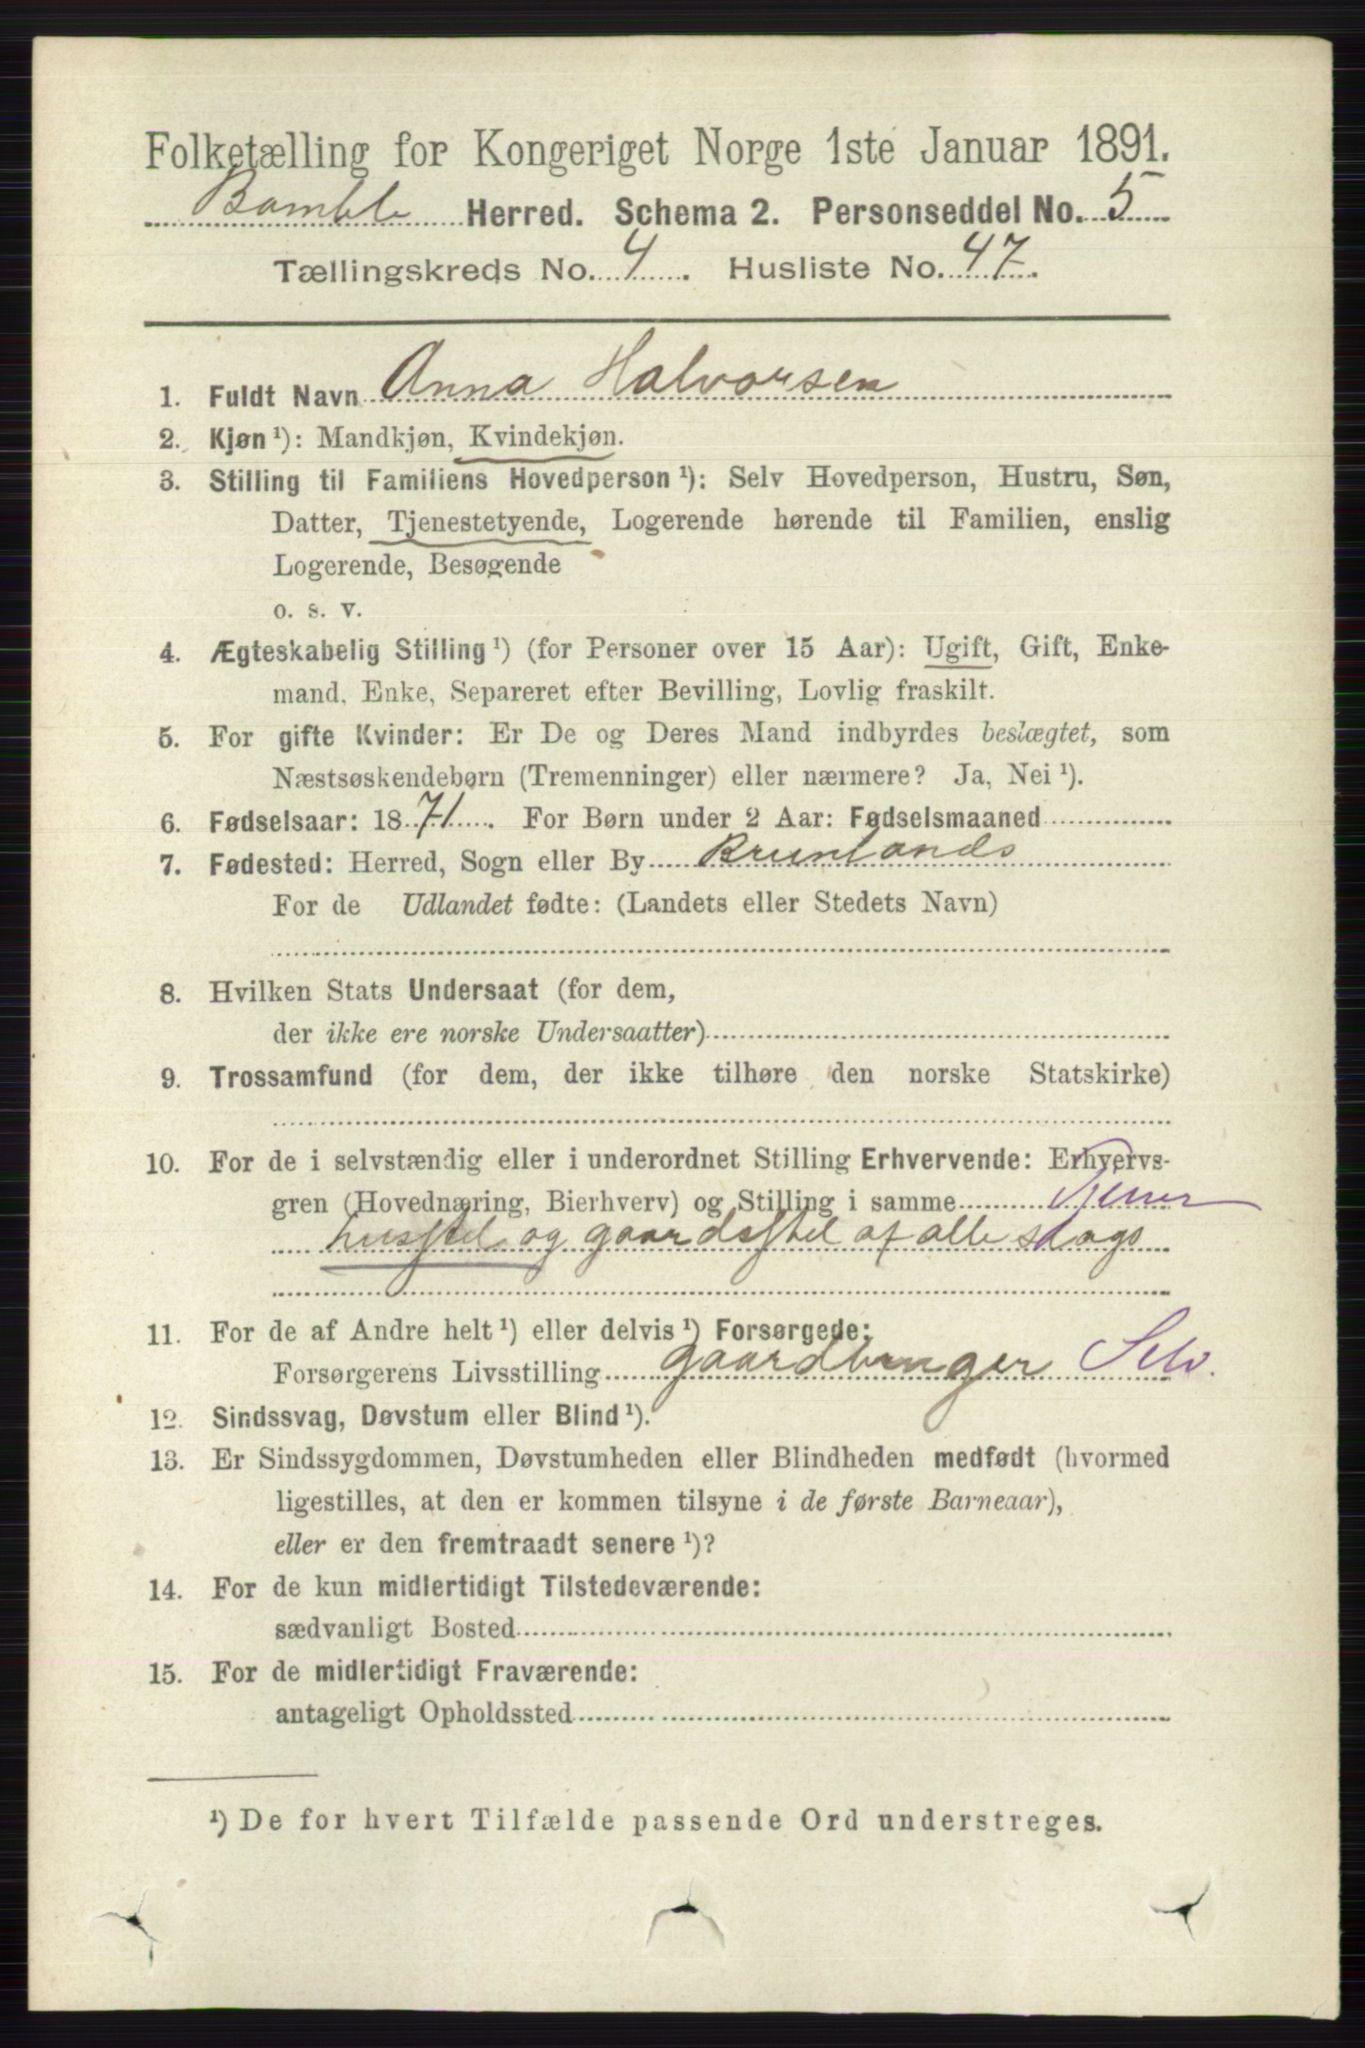 Folketælling for Kongeriget Norge 1ste Januar 1891.
Bamble Herred. Schema 2. Personseddel No. 5
Tællingskreds No. 4. Husliste No. 47.
1. Fuldt Navn Anna Halvorsen
2. Kjøn ¹): Mandkjøn, Kvindekjøn.
3. Stilling til Familiens Hovedperson ¹): Selv Hovedperson, Hustru, Søn,
Datter, Tjenestetyende, Logerende hørende til Familien, enslig
Logerende, Besøgende
o. s. v.
4. Ægteskabelig Stilling ¹) (for Personer over 15 Aar): Ugift, Gift, Enke-
mand, Enke, Separeret efter Bevilling, Lovlig fraskilt.
5. For gifte Kvinder: Er De og Deres Mand indbyrdes beslægtet, som
Næstsøskendebørn (Tremenninger) eller nærmere? Ja, Nei ¹).
6. Fødselsaar: 1871. For Børn under 2 Aar: Fødselsmaaned
7. Fødested: Herred, Sogn eller By Brunlands
For de Udlandet fødte: (Landets eller Stedets Navn)
8. Hvilken Stats Undersaat (for dem,
der ikke ere norske Undersaatter)
9. Trossamfund (for dem, der ikke tilhøre den norske Statskirke)
10. For de i selvstændig eller i underordnet Stilling Erhvervende: Erhvervs-
gren (Hovednæring, Bierhverv) og Stilling i samme
husstel og gaardsstel af alle slags
11. For de af Andre helt ¹) eller delvis ¹) Forsørgede:
Forsørgerens Livsstilling gaardbruger Selv.
12. Sindssvag, Døvstum eller Blind ¹).
13. Er Sindssygdommen, Døvstumheden eller Blindheden medfødt (hvormed
ligestilles, at den er kommen tilsyne i de første Barneaar),
eller er den fremtraadt senere ¹)?
14. For de kun midlertidigt Tilstedeværende:
sædvanligt Bosted
15. For de midlertidigt Fraværende:
antageligt Opholdssted
¹) De for hvert Tilfælde passende Ord understreges.